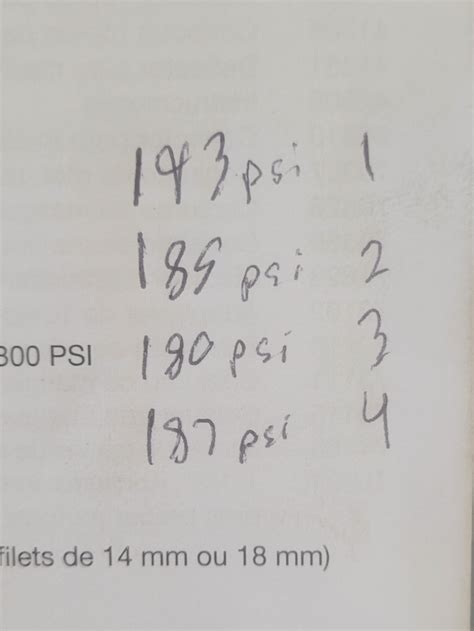 143 psi 1
185 psi 2
300 PSI
180 psi 3
187 psi 4
filets de 14 mm ou 18 mm)